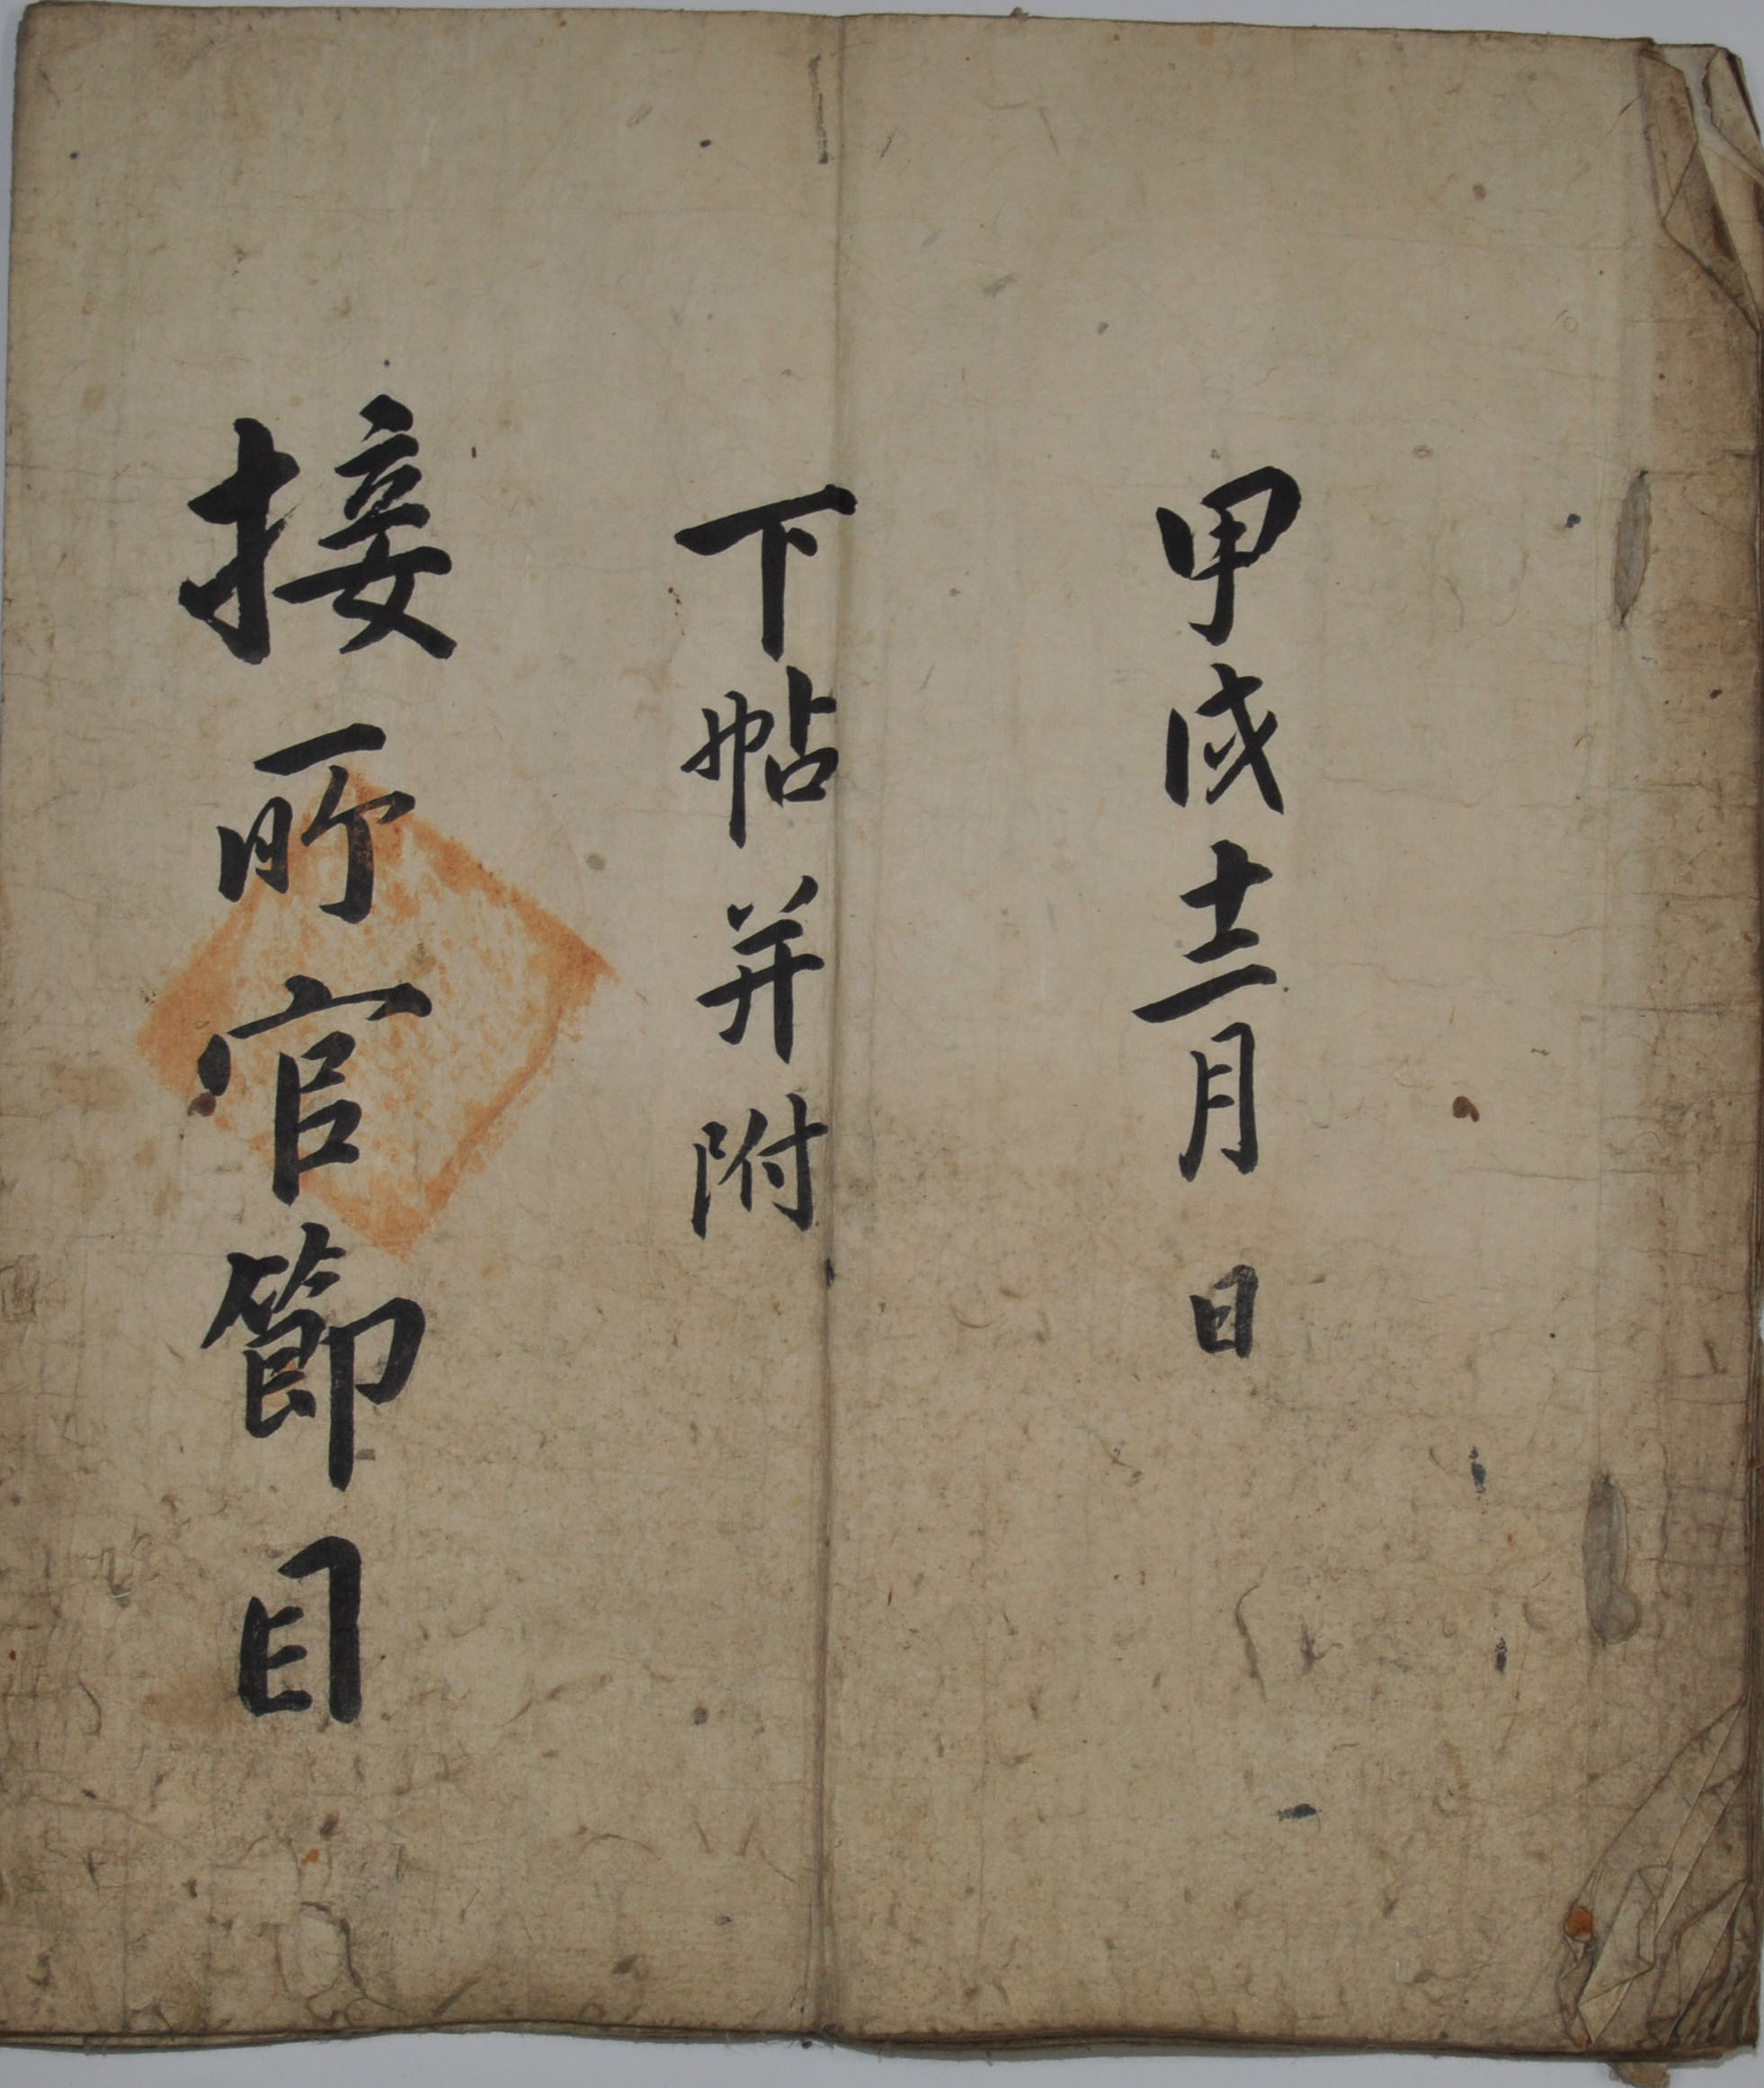 甲戌十二月 日
下帖并附
接所官節目